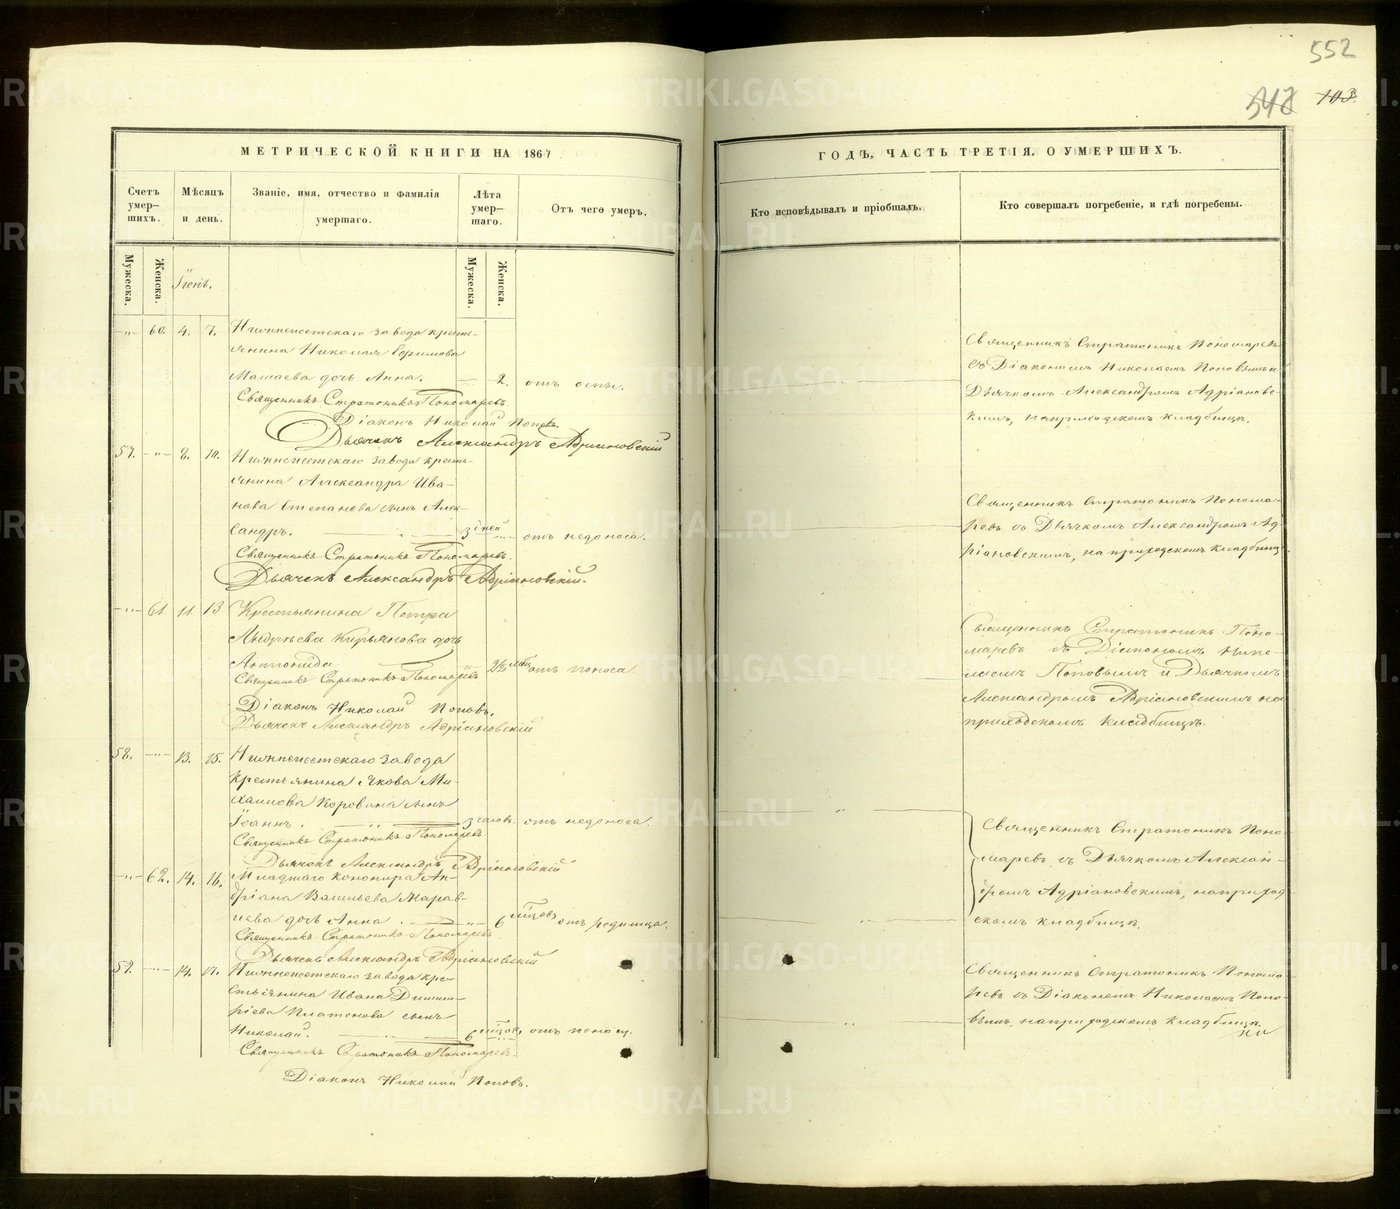 552
103
МЕТРИЧЕСКОЙ КНИГИ НА 1867
ГОДЪ, ЧАСТЬ ТРЕТІЯ, О УМЕРШИХЪ.
Счетъ умер-шихъ.
Мѣсяцъ и день.
Званіе, имя, отчество и фамилія умершаго.
Лѣта умер-шаго.
Отъ чего умеръ.
Кто исповѣдывалъ и пріобщалъ.
Кто совершалъ погребеніе, и гдѣ погребены.
Мужеска.
Женска.
Мужеска.
Женска.
60. 4. 7. Нижнеисетскаго завода кресть-
янина Николая Ефимова
дочь Анна. 2. отъ оспы.
Священникъ Стратоникъ Пономаревъ.
Діаконъ Николай Поповъ.
Дьячекъ Александръ Адріановскій
Священникъ Стратоникъ Пономаревъ
съ Діакономъ Николаемъ Поповымъ и
Дьячкомъ Александромъ Адріановс-
кимъ, на приходскомъ кладбищѣ.
57. 8. 10. Нижнеисетскаго завода кресть-
янина Александра Ива-
нова Степанова сынъ Алек-
сандръ. отъ недоноса.
Священникъ Стратоникъ Пономаревъ.
Дьячекъ Александръ Адріановскій.
Священникъ Стратоникъ Понома-
ревъ съ Дьячкомъ Александромъ Ад-
ріановскимъ, на приходскомъ кладбищѣ.
61. 11. 13 Крестьянина Петра
Андреева Кирьянова дочь
Антонида отъ поноса
Священникъ Стратоникъ Пономаревъ
Діаконъ Николай Поповъ.
Дьячекъ Александръ Адріановскій
Священникъ Стратоникъ Поно-
маревъ съ Діакономъ Нико-
лаемъ Поповымъ и Дьячкомъ
Александромъ Адріановскимъ на
приходскомъ кладбищѣ.
58. 13. 15. Нижнеисетскаго завода
крестьянина Якова Ми-
хайлова Коровина сынъ
Іоаннъ. 3 часов. отъ недоноса.
Священникъ Стратоникъ Пономаревъ
Дьячекъ Александръ Адріановскій
Священникъ Стратоникъ Поно-
маревъ съ Дьячкомъ Алексан-
дромъ Адріановскимъ, на приход-
скомъ кладбищѣ.
62. 14. 16. Младшаго
дріана Васильева
дочь Анна 6 отъ родимца.
Священникъ Стратоникъ Пономаревъ
Дьячекъ Александръ Адріановскій
59. 14. 17. Нижнеисетскаго завода кре-
стьянина Ивана Димит-
ріева Платонова сынъ
Николай. 6 отъ поносу.
Священникъ Стратоникъ Пономаревъ.
Діаконъ Николай Поповъ.
Священникъ Стратоникъ Понома-
ревъ съ Діакономъ Николаемъ Попо-
вымъ, на приходскомъ кладбищѣ.
METRIKI.GASO-URAL.RU